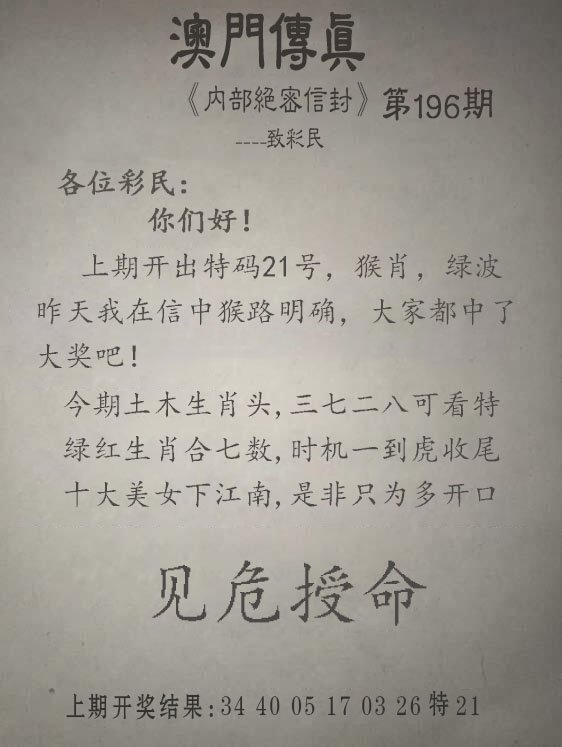 澳門傳眞
《内部絕密信封》第196期
----致彩民
各位彩民：
你们好！
上期开出特码21号，猴肖，绿波
昨天我在信中猴路明确，大家都中了
大奖吧！
今期土木生肖头,三七二八可看特
绿红生肖合七数,时机一到虎收尾
十大美女下江南,是非只为多开口
见危授命
上期开奖结果:34 40 05 17 03 26特21